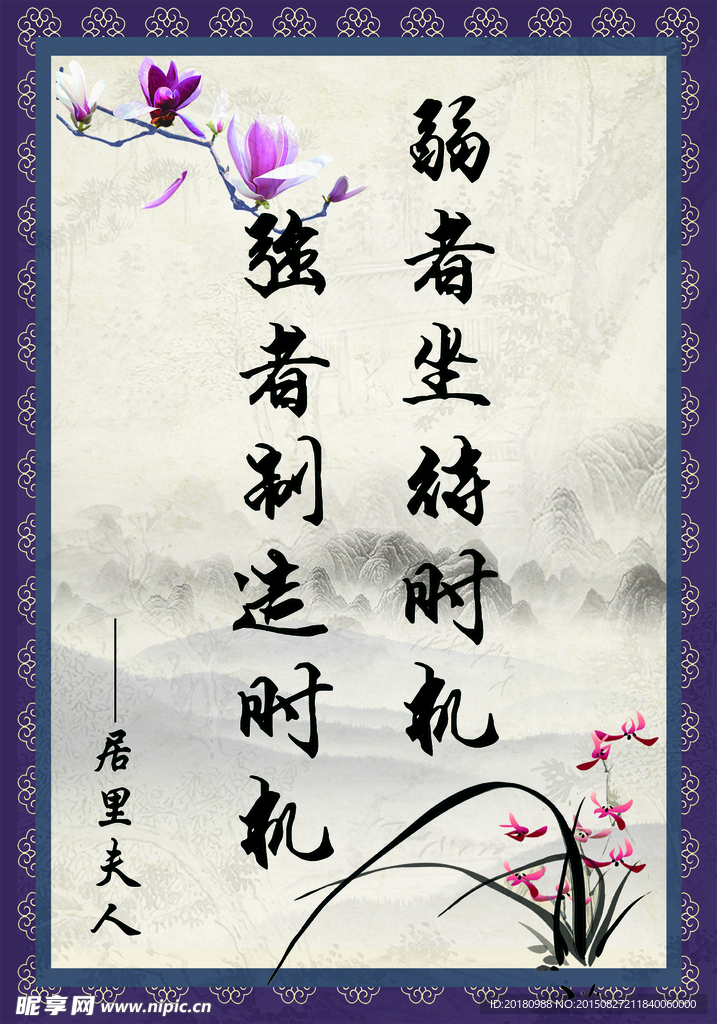 弱者坐待时机
强者制造时机
——居里夫人
昵享网 www.nipic.cn
ID:20180988 NO:20150827211840060000